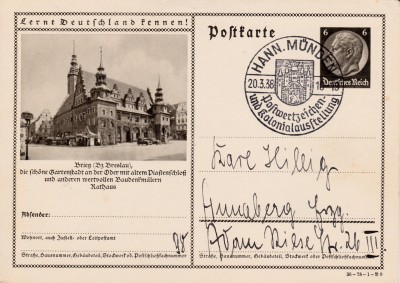 Lernt Deutschland kennen!
Brieg (Bz. Breslau),
die schöne Gartenstadt an der Oder mit altem Piastenschloß
und anderen wertvollen Baudenkmälern
Rathaus
Absender:
Wohnort, auch Zustell- oder Leitpostamt
Straße, Hausnummer, Gebäudeteil, Stockwerk od. Postschließfachnummer
Postkarte
HANN. MÜNDEN
20.3.38
Postwertzeichen-
und Kolonialausstellung
6 6
Deutsches Reich
Karl Hillig
Annaberg Erzg.
Adam Riese Str. 26 III
Straße, Hausnummer, Gebäudeteil, Stockwerk oder Postschließfachnummer